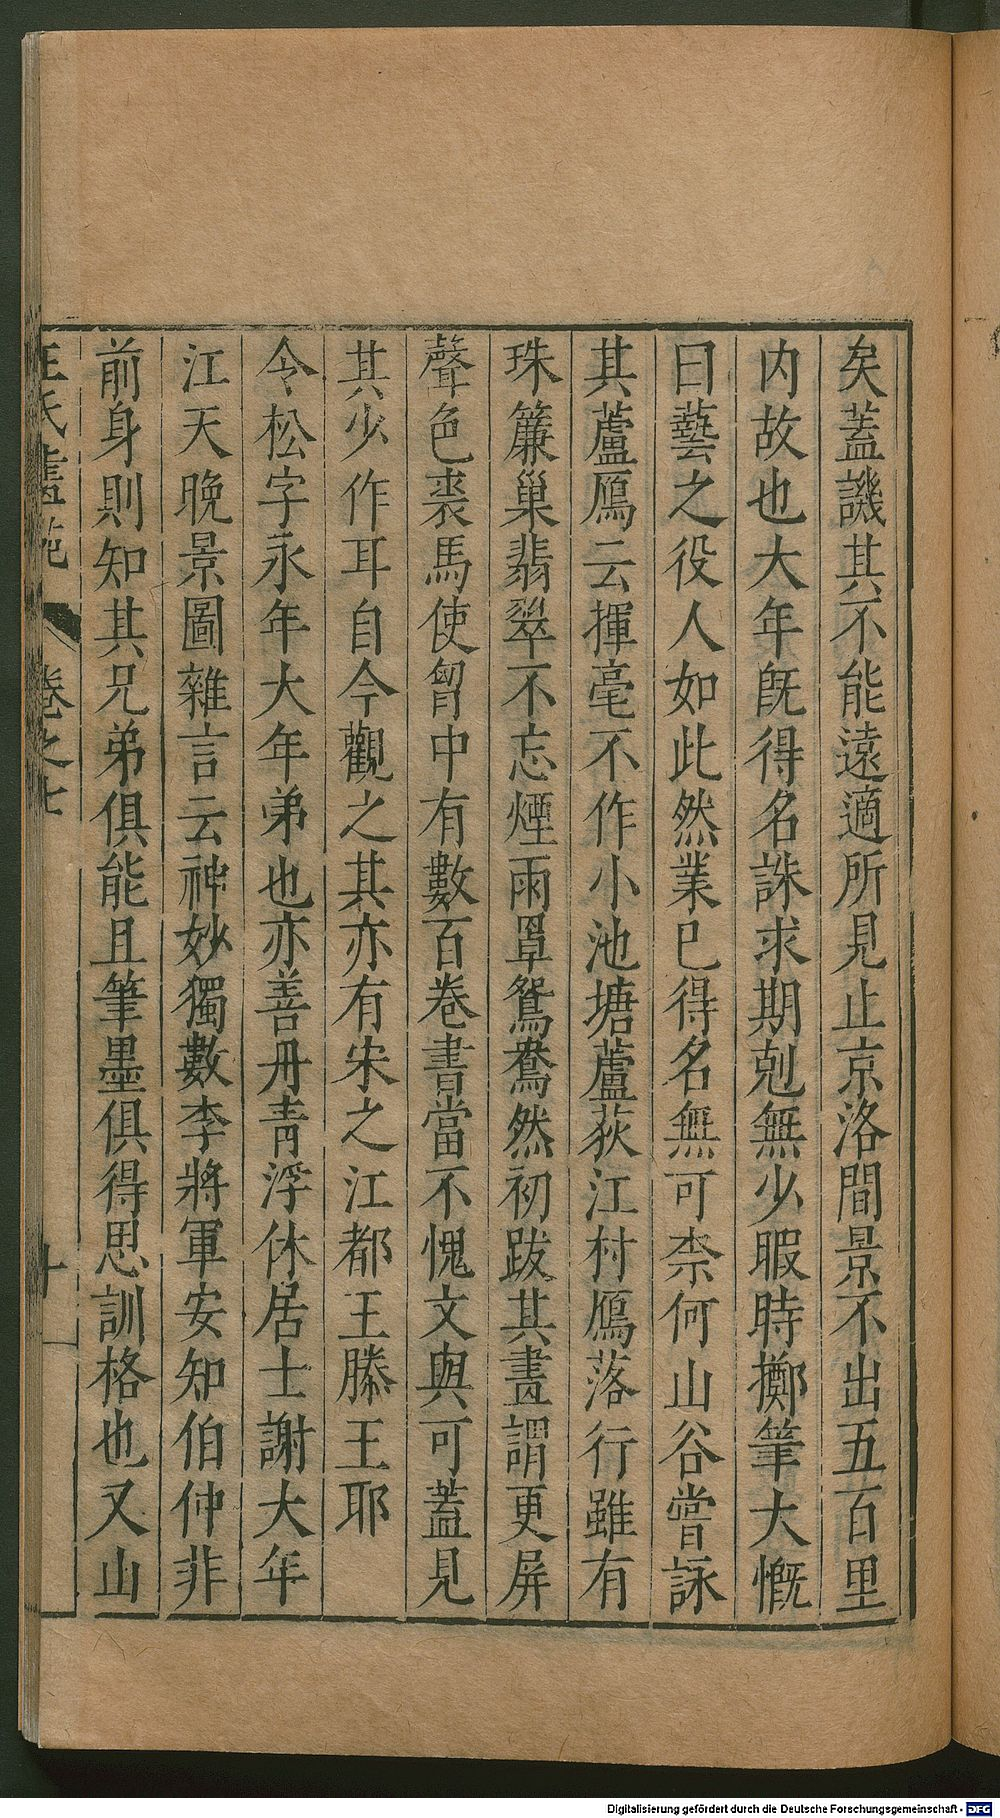 矣蓋譏其不能遠適所見止京洛間景不出五百里
内故也大年既得名誅求期剋無少暇時擲筆大慨
曰藝之役人如此然業已得名無可柰何山谷嘗詠
其蘆鴈云揮毫不作小池塘蘆荻江村鴈落行雖有
珠簾巢翡翠不忘煙雨罩鴛鴦然初跋其畫謂更屏
聲色裘馬使胷中有數百卷書當不愧文與可蓋見
其少作耳自今觀之其亦有宋之江都王滕王耶
令松字永年大年弟也亦善丹青浮休居士謝大年
江天晚景圖雜言云神妙獨數李將軍安知伯仲非
前身則知其兄弟俱能且筆墨俱得思訓格也又山
王氏畫苑 卷之七 十
Digitalisierung gefördert durch die Deutsche Forschungsgemeinschaft - DFG